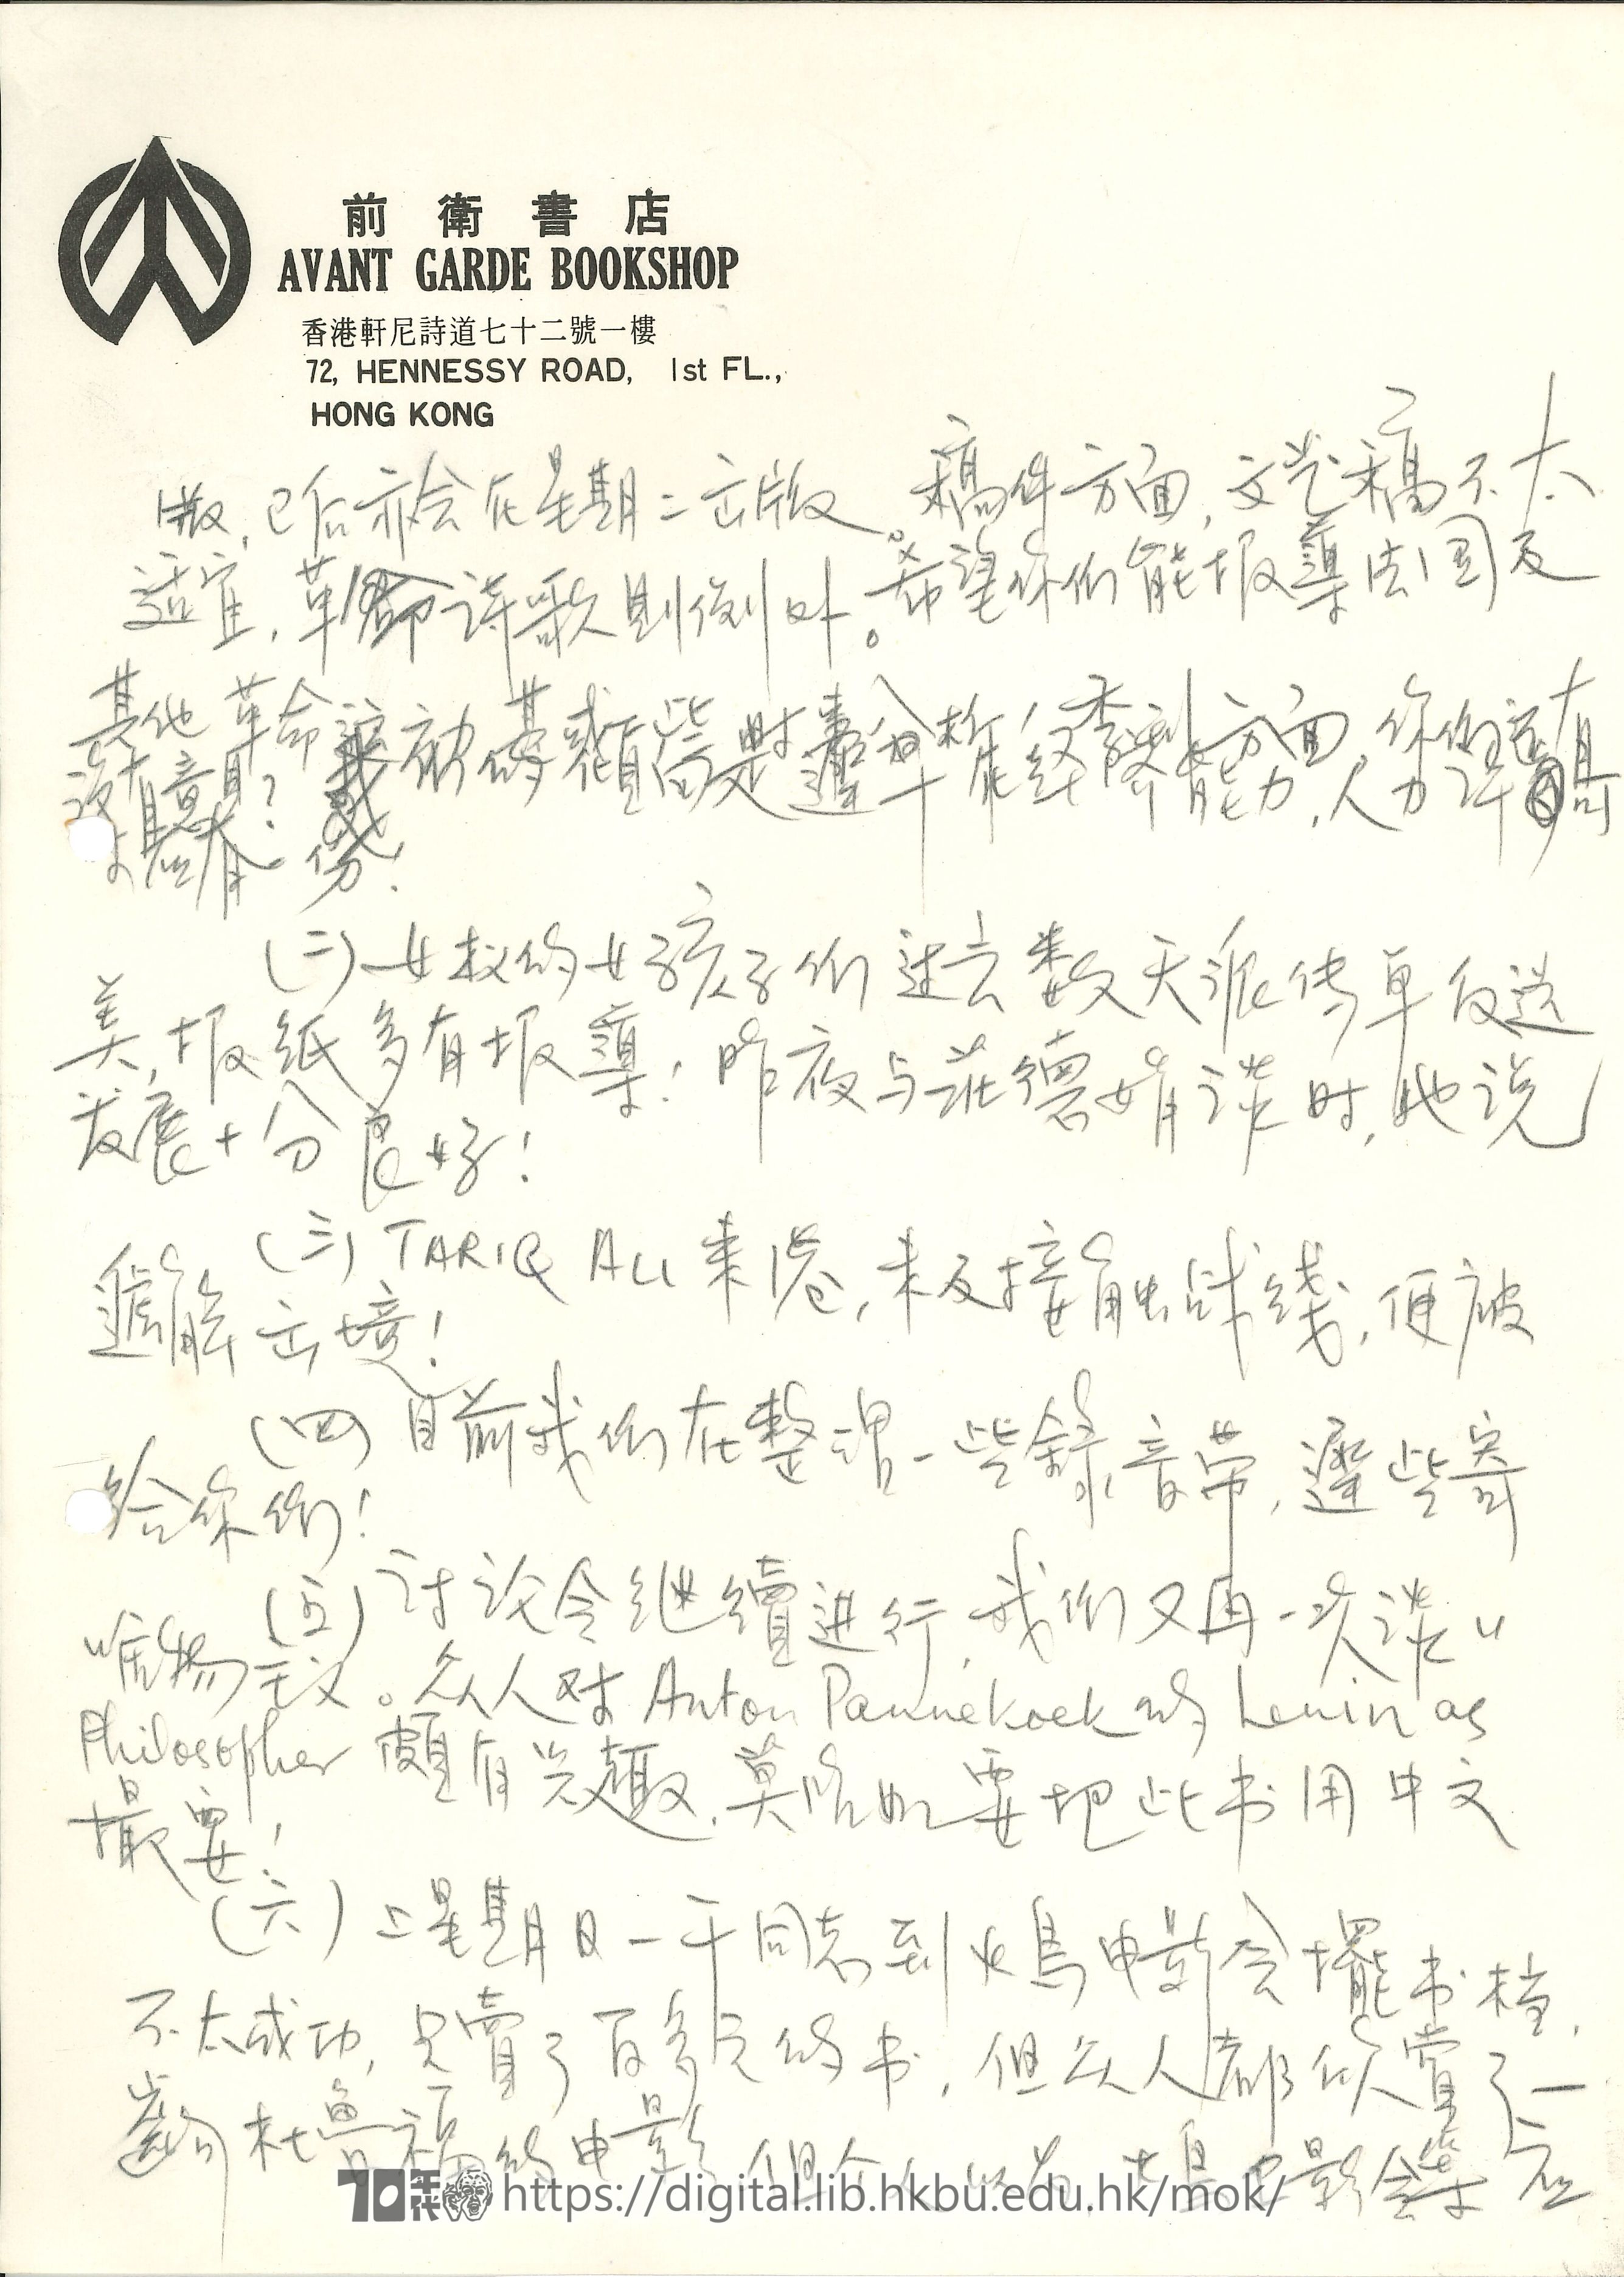 前衛書店
AVANT GARDE BOOKSHOP
香港軒尼詩道七十二號一樓
72, HENNESSY ROAD, 1st FL.,
HONG KONG
版,已后亦会在星期二出版。稿件方面,文艺稿不太
适宜,革命诗歌則例外。希望你们能报導法国及
其他革命
意見?
(二)女权的女孩子们过去数天派传单反选
美,报纸多有报導!昨夜与莊德娟谈时,她说
发展十分良好!
(三)TARIQ ALI来港,未及接触战线,便被
遞解出境!
(四)目前我们在整理一些錄音带,遲些寄
给你们!
(五)讨论会继續进行,我们又再一次谈"
唯物主义。众人对Anton Pannekoek的Lenin as
Philosopher 頗有兴趣,莫昭如要把此书用中文
撮要!
(六)上星期日一干同志到火鳥电影会擺书档,
不太成功,只賣了百多元的书,但众人都欣賞了一
齣杜魯福的电影
70年代 https://digital.lib.hkbu.edu.hk/mok/